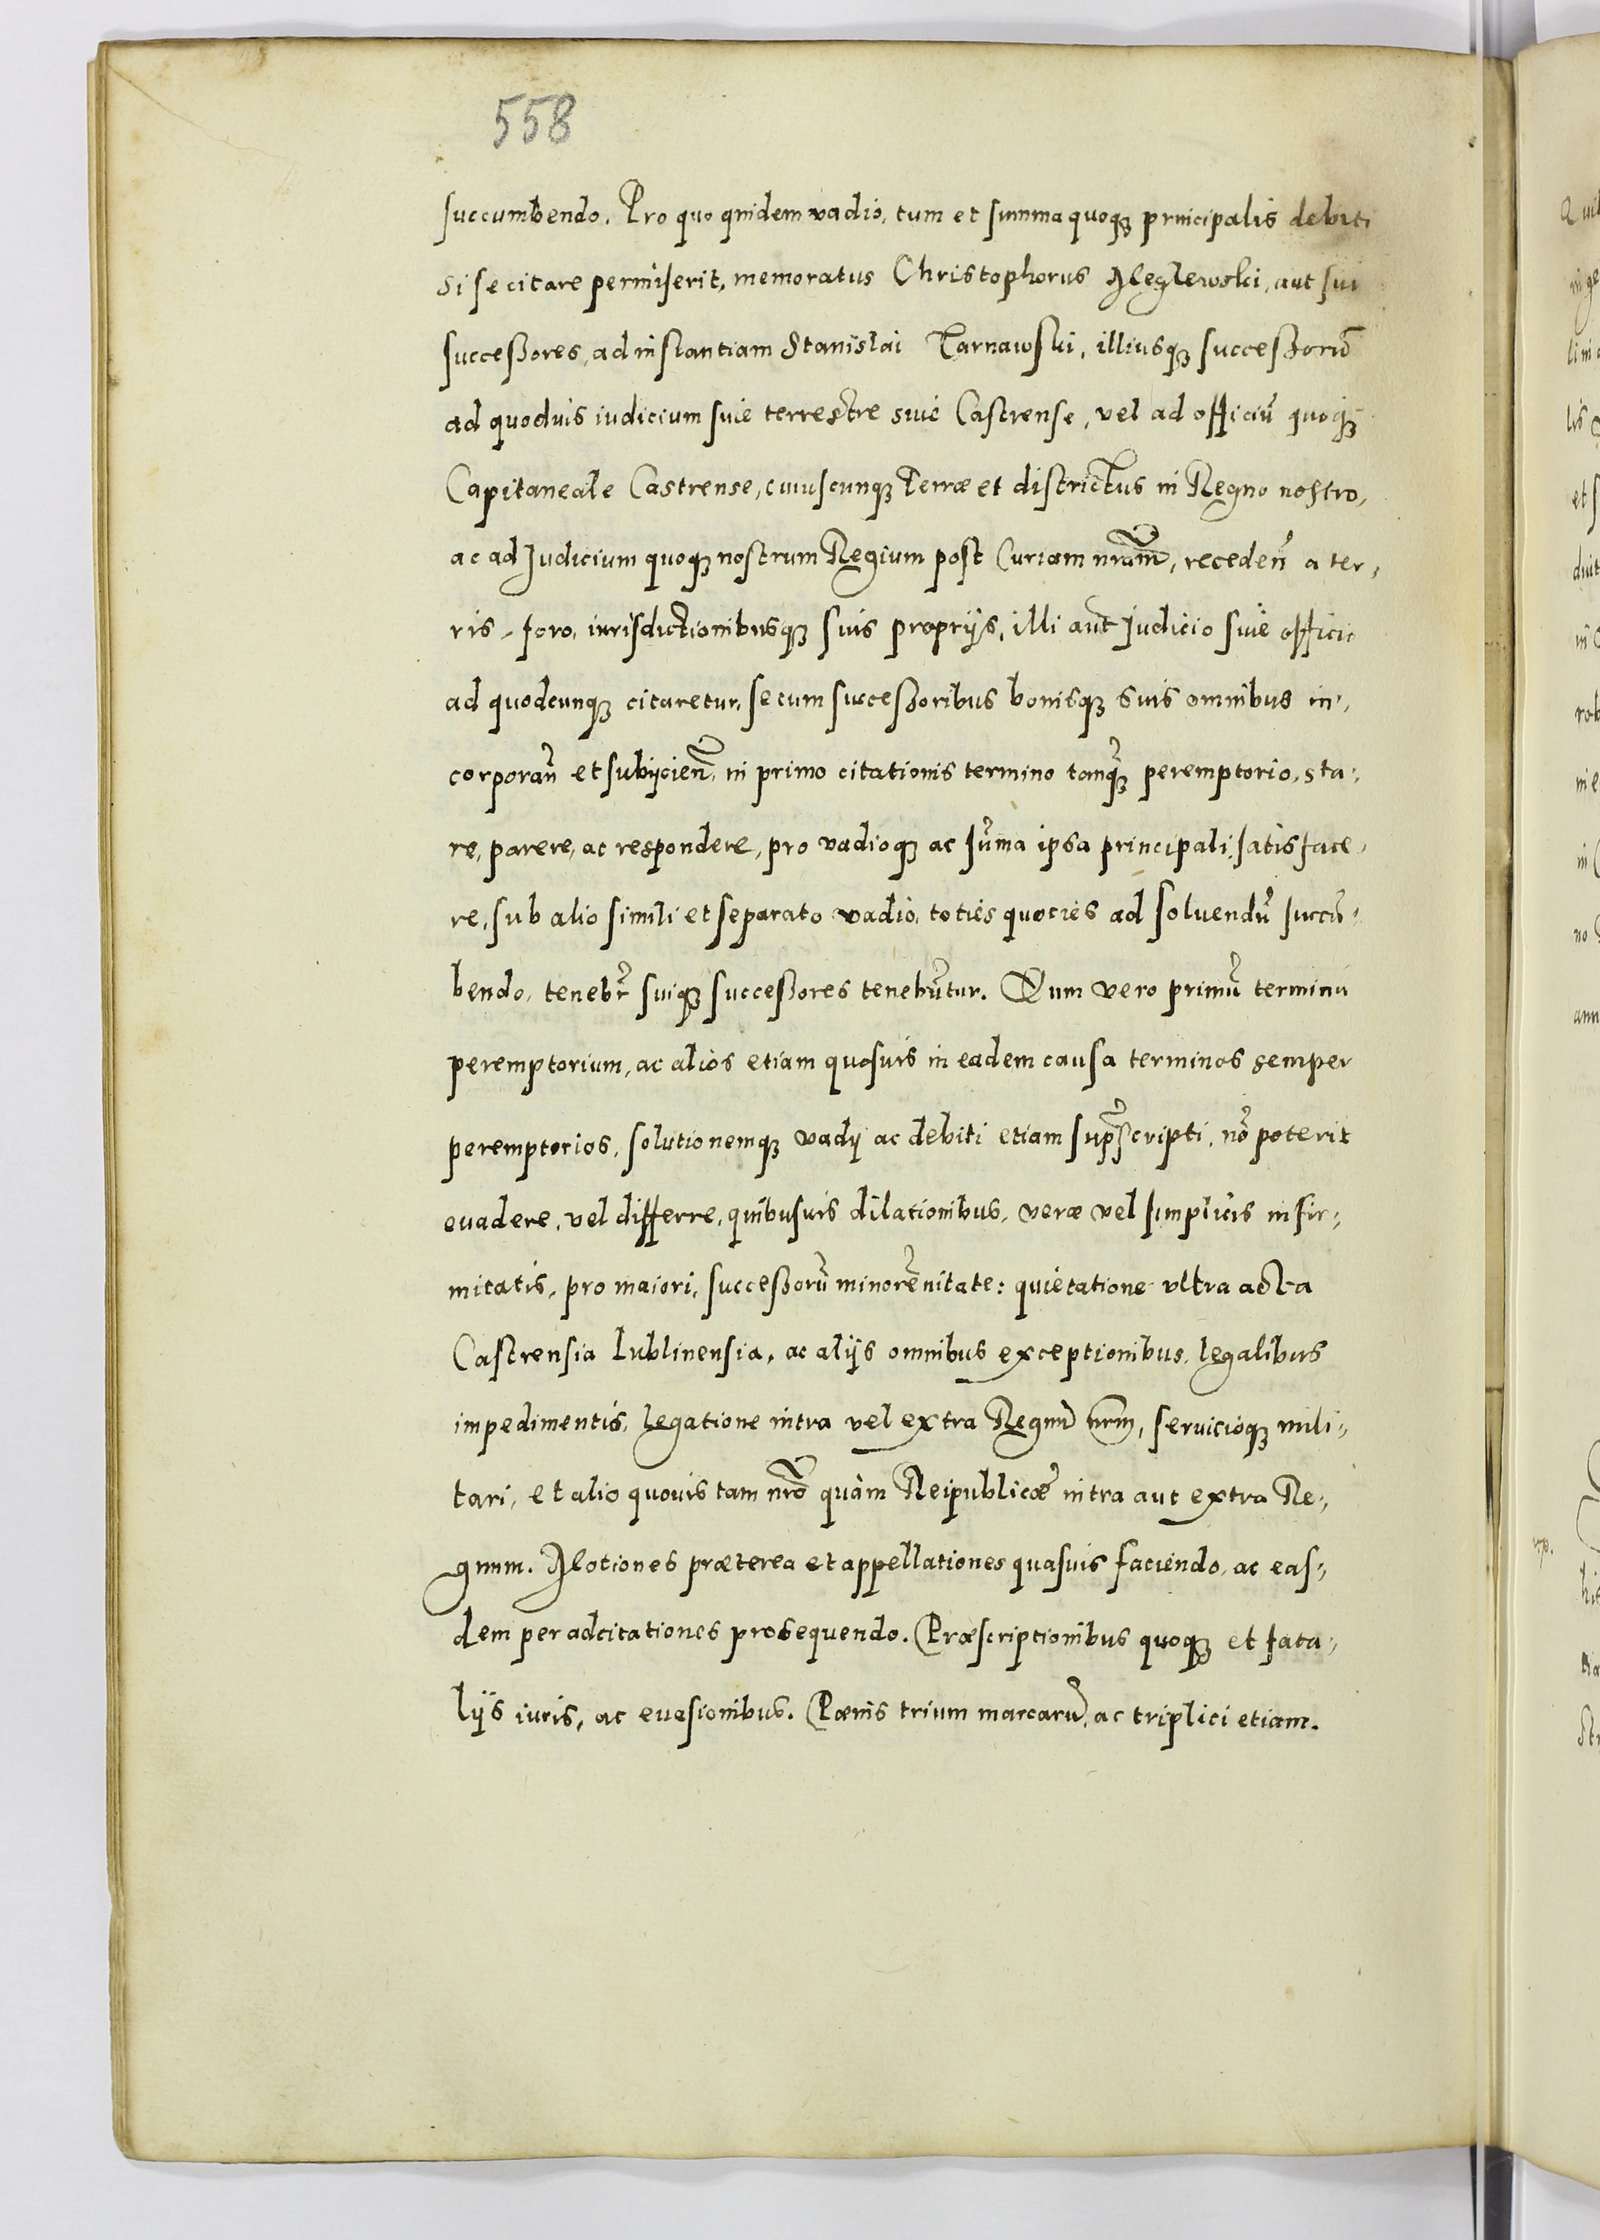 558
succumbendo. Pro quo quidem vadio, tum et summa quoq; principalis debiti
si se citare permiserit, memoratus Christophorus Meglewski, aut sui
successores, ad instantiam Stanislai Tarnawski, illiusq; successorũ
ad quoduis iudicium siue terrestre siue Castrense, vel ad officiũ quoq;
Capitaneale Castrense, cuiuscunq; Terræ et districtus in Regno nostro,
ac ad Judicium quoq; nostrum Regium post Curiam nram̃, recedeñ a ter,,
ris, foro, iurisdictionibusq; suis proprijs, illi aut Judicio siue officio
ad quodcunq; citaretur, se cum successoribus bonisq; suis omnibus in,,
corporañ et subijcieñ, in primo citationis termino tanq̃ peremptorio, sta,,
re, parere, ac respondere, pro vadioq; ac sũma ipsa principali, satisface,,
re, sub alio simili et separato vadio, toties quoties ad soluendũ succũ,,
bendo, tenebr̃ suiq; successores tenebũtur. Dum vero primũ terminũ
peremptorium, ac alios etiam quosuis in eadem causa terminos semper
peremptorios, solutionemq; vadij ac debiti etiam supr̃scripti, nõ poterit
euadere, vel differre, quibusuis dilationibus, veræ vel simplicis infir,,
mitatis, pro maiori, successorũ minorẽnitate: quietatione vltra acta
Castrensia Lublinensia, ac alijs omnibus exceptionibus, legalibus
impedimentis, legatione intra vel extra Regnũ nrm̃, seruicioq; mili,,
tari, et alio quouis tam nrõ quàm Reipublicæ intra aut extra Re,,
gnum. Motiones præterea et appellationes quasuis faciendo, ac eas,,
dem per adcitationes prosequendo. Præscriptionibus quoq; et fata,,
lijs iuris, ac euasionibus. Pœnis trium marcarũ, ac triplici etiam.